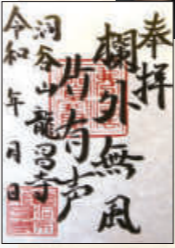 奉拝
欄外無風
竹有声
洞谷山龍昌寺
令和 年 月 日